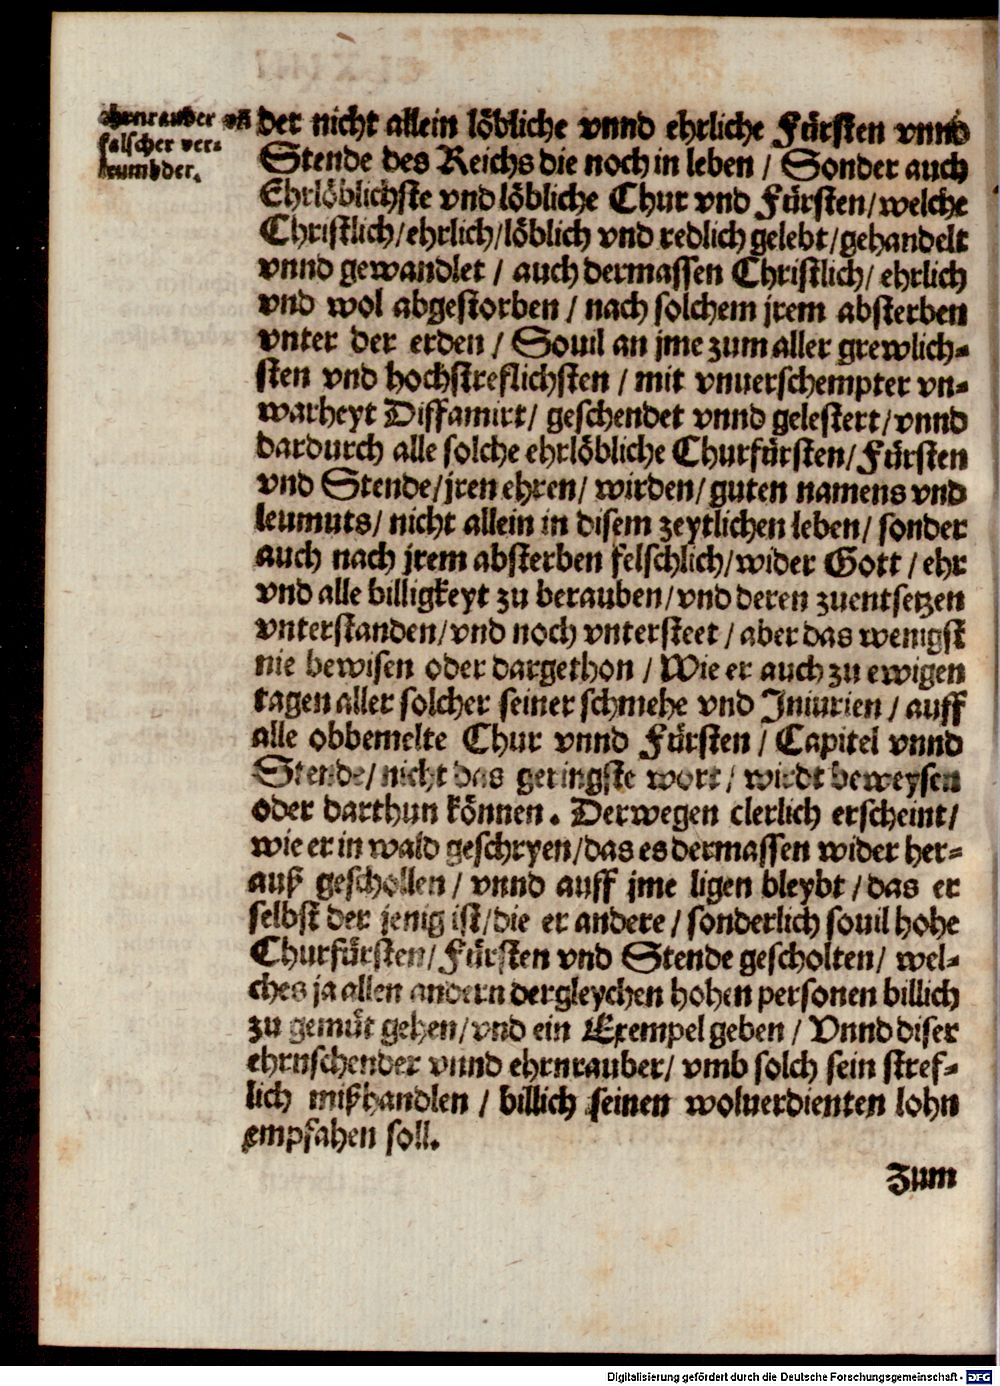 ehrnrauber vñ
falscher ver-
leumbder.
der nicht allein löbliche vnnd ehrliche Fürsten vnnd
Stende des Reichs die noch in leben / Sonder auch
Ehrlöblichste vnd löbliche Chur vnd Fürsten/welche
Christlich/ehrlich/löblich vnd redlich gelebt/gehandelt
vnnd gewandlet / auch dermassen Christlich/ ehrlich
vnd wol abgestorben / nach solchem jrem absterben
vnter der erden / Souil an jme zum aller grewlich-
sten vnd hochstreflichsten / mit vnuerschempter vn-
warheyt Diffamirt/ geschendet vnnd gelestert/vnnd
dardurch alle solche ehrlöbliche Churfürsten/Fürsten
vnd Stende/jren ehren/ wirden/guten namens vnd
leumuts/ nicht allein in disem zeytlichen leben/ sonder
auch nach jrem absterben felschlich/wider Gott / ehr
vnd alle billigkeyt zu berauben/vnd deren zuentsetzen
vnterstanden/vnd noch vntersteet / aber das wenigst
nie bewisen oder dargethon / Wie er auch zu ewigen
tagen aller solcher seiner schmehe vnd Iniurien / auff
alle obbemelte Chur vnnd Fürsten / Capitel vnnd
Stende/ nicht das geringste wort/ wirdt beweysen
oder darthun können. Derwegen clerlich erscheint/
wie er in wald geschryen/das es dermassen wider her-
auß geschollen / vnnd auff jme ligen bleybt / das er
selbst der jenig ist/die er andere / sonderlich souil hohe
Churfürsten/ Fürsten vnd Stende gescholten/ wel-
ches ja allen andern dergleychen hohen personen billich
zu gemüt gehen/vnd ein Exempel geben / Vnnd diser
ehrnschender vnnd ehrnrauber/ vmb solch sein stref-
lich mißhandlen / billich seinen woluerdienten lohn
empfahen soll.
Zum
Digitalisierung gefördert durch die Deutsche Forschungsgemeinschaft - DFG